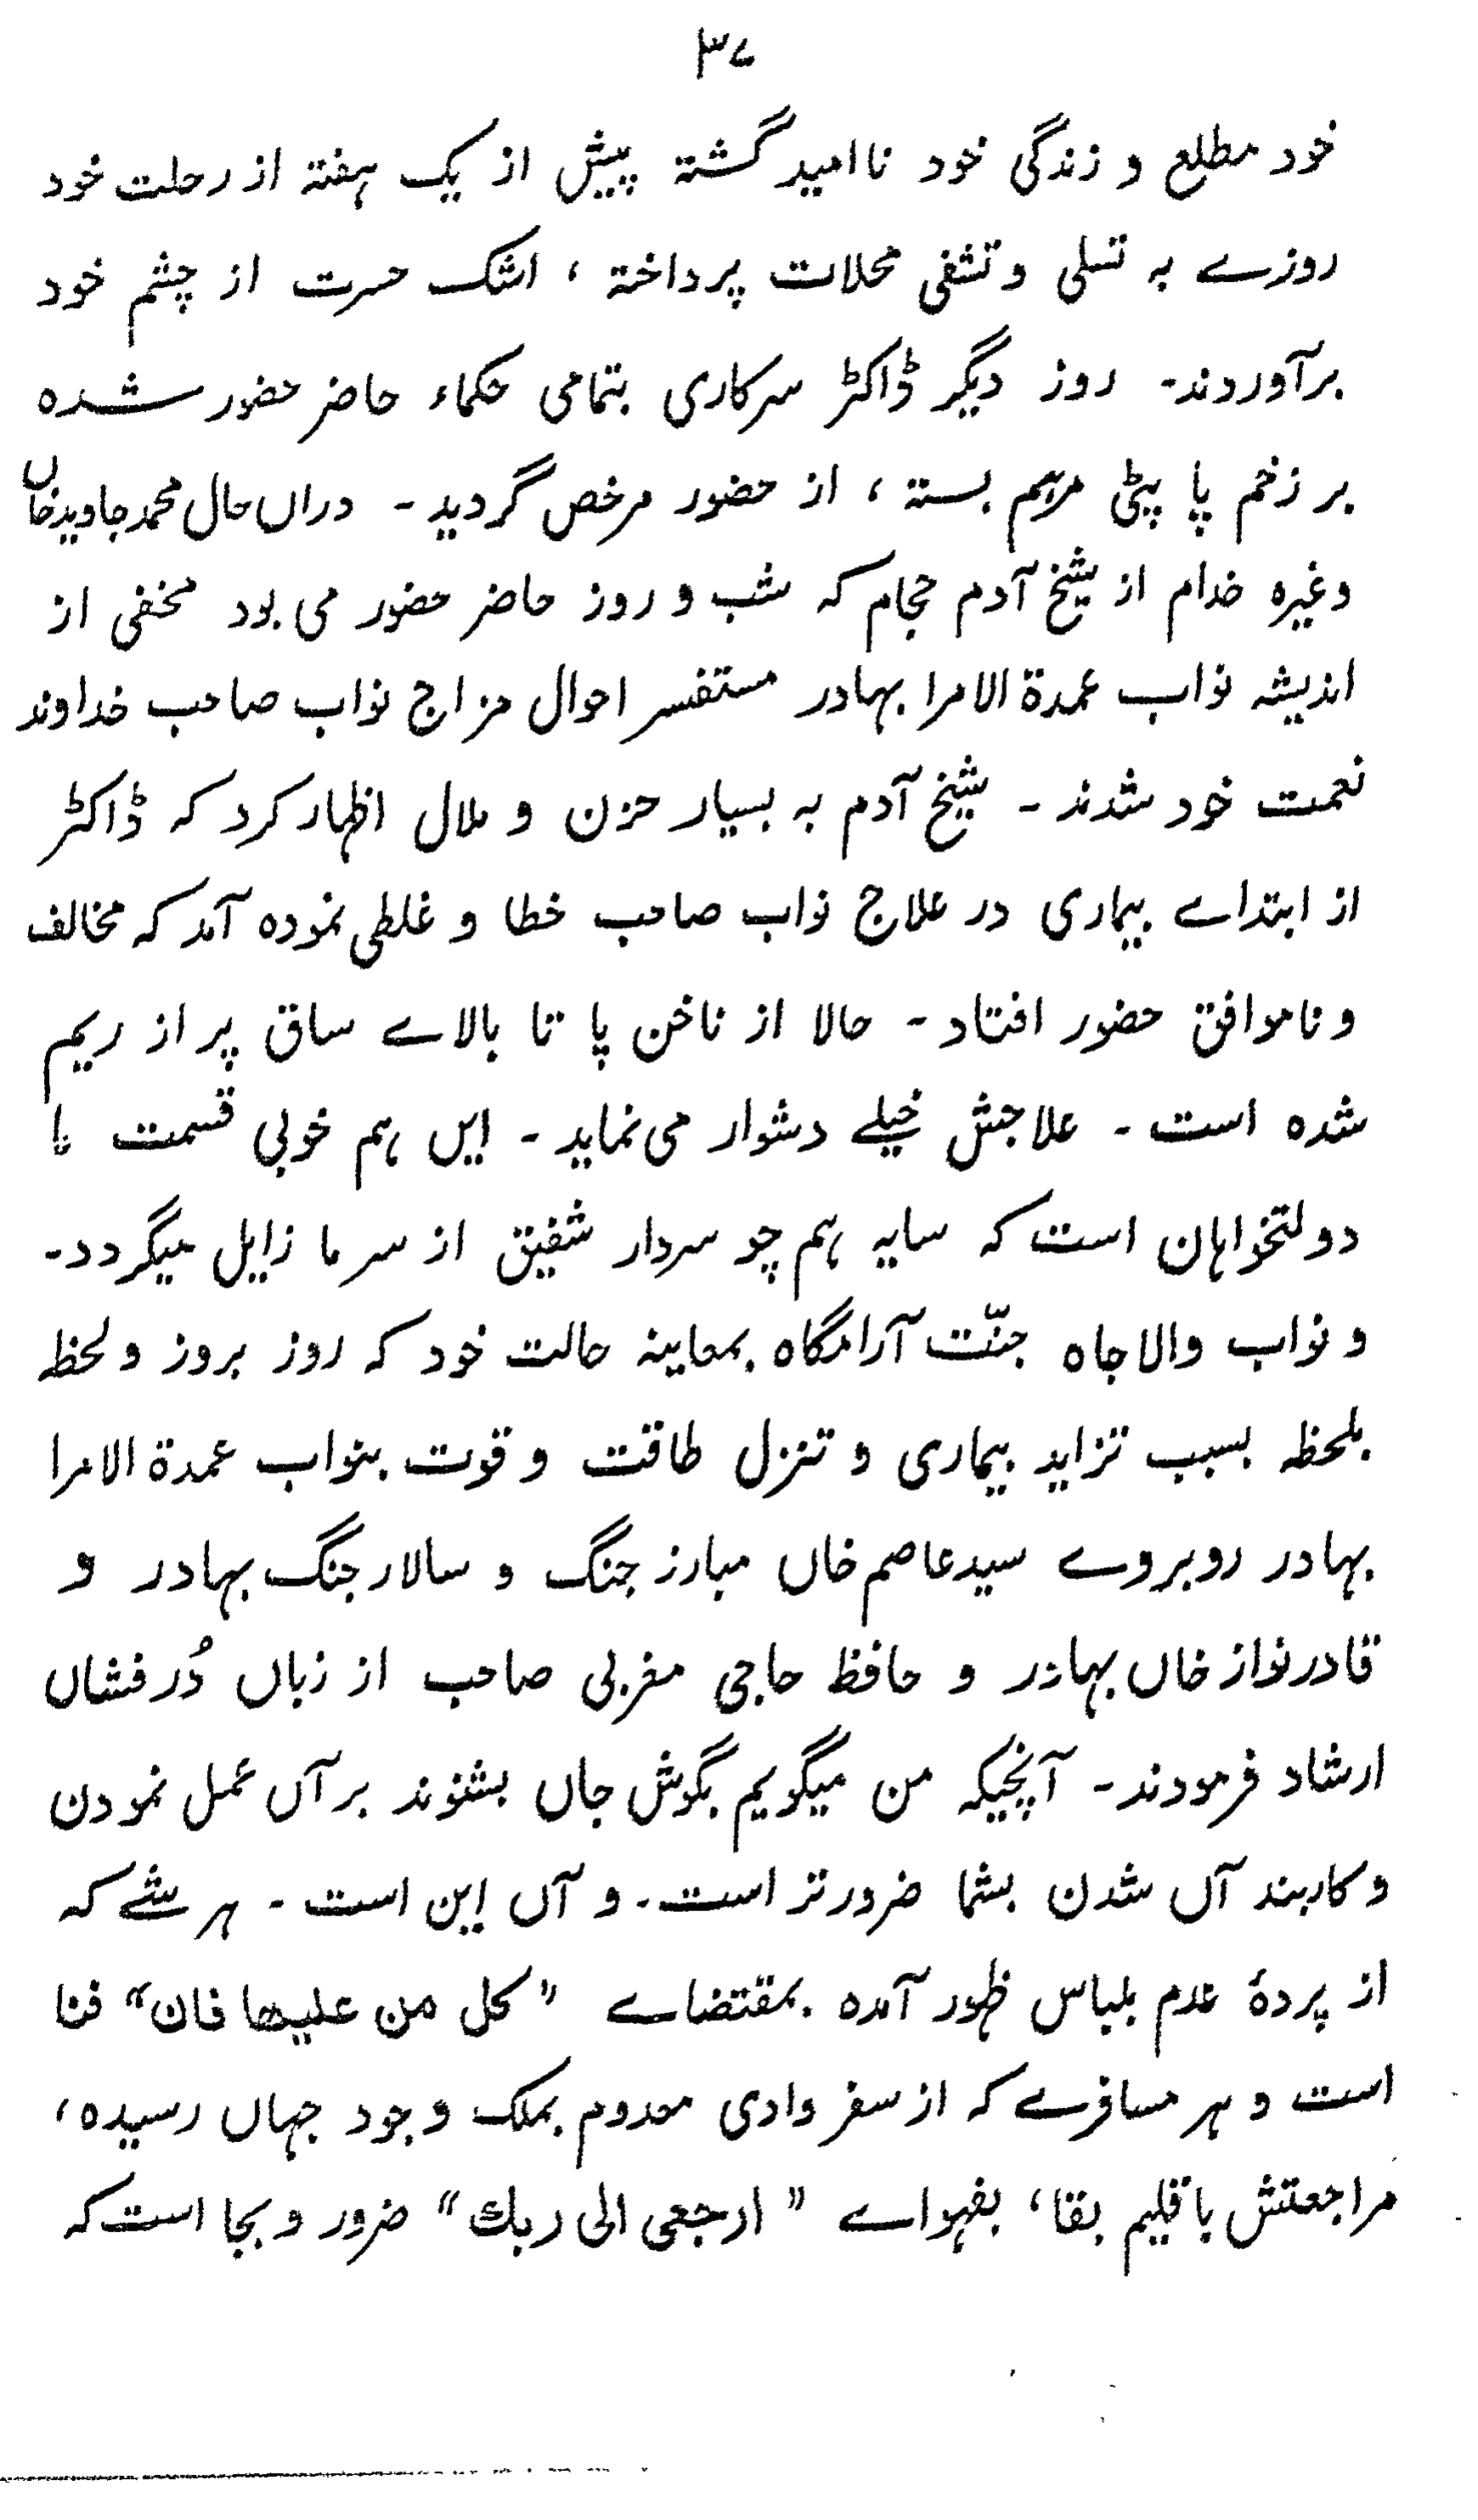 ۳۷
خود مطلع و زندگی خود ناامید گشتہ پیش از یک ہفتہ از رحلت خود
روزے بہ تسلی و تشفی محلات پرداختہ ، اشک حسرت از چشم خود
برآوردند۔ روز دیگر ڈاکٹر سرکاری بتمامی حکماء حاضر حضور شدہ
بر زخم پا پٹی مرہم بستہ ، از حضور مرخص گردید ۔ دراں حال محمد جاوید خاں
وغیرہ خدام از شیخ آدم حجام کہ شب و روز حاضر حضور می بود مخفی از
اندیشہ نواب عمدۃ الامرا بہادر مستفسر احوال مزاج نواب صاحب خداوند
نعمت خود شدند ۔ شیخ آدم بہ بسیار حزن و ملال اظہار کرد کہ ڈاکٹر
از ابتداے بیماری در علاج نواب صاحب خطا و غلطی نمودہ آمد کہ مخالف
و ناموافق حضور افتاد ۔ حالا از ناخن پا تا بالاے ساق پر از ریم
شدہ است ۔ علاجش خیلے دشوار می نماید ۔ ایں ہم خوبی قسمت ما
دولتخواہان است کہ سایہ ہم چو سردار شفیق از سر ما زایل میگردد۔
و نواب والا جاہ جنّت آرامگاہ بمعاینہ حالت خود کہ روز بروز و لحظہ
بلحظہ بسبب تزاید بیماری و تنزل طاقت و قوت بنواب عمدۃ الامرا
بہادر روبروے سید عاصم خاں مبارز جنگ و سالار جنگ بہادر و
قادر نواز خاں بہادر و حافظ حاجی مغربی صاحب از زباں دُر فشاں
ارشاد فرمودند۔ آنچیکہ من میگویم بگوش جاں بشنوند برآں عمل نمودن
و کاربند آں شدن بشما ضرور تر است۔ و آں این است ۔ ہر شئے کہ
از پردۂ عدم بلباس ظہور آمدہ بمقتضاے ”کل من علیھا فان“ فنا
است و ہر مسافرے کہ از سفر وادی معدوم بملک وجود جہاں رسیدہ ،
مراجعتش باقلیم بقا ، بفہواے ”ارجعی الی ربك“ ضرور و بجا است کہ